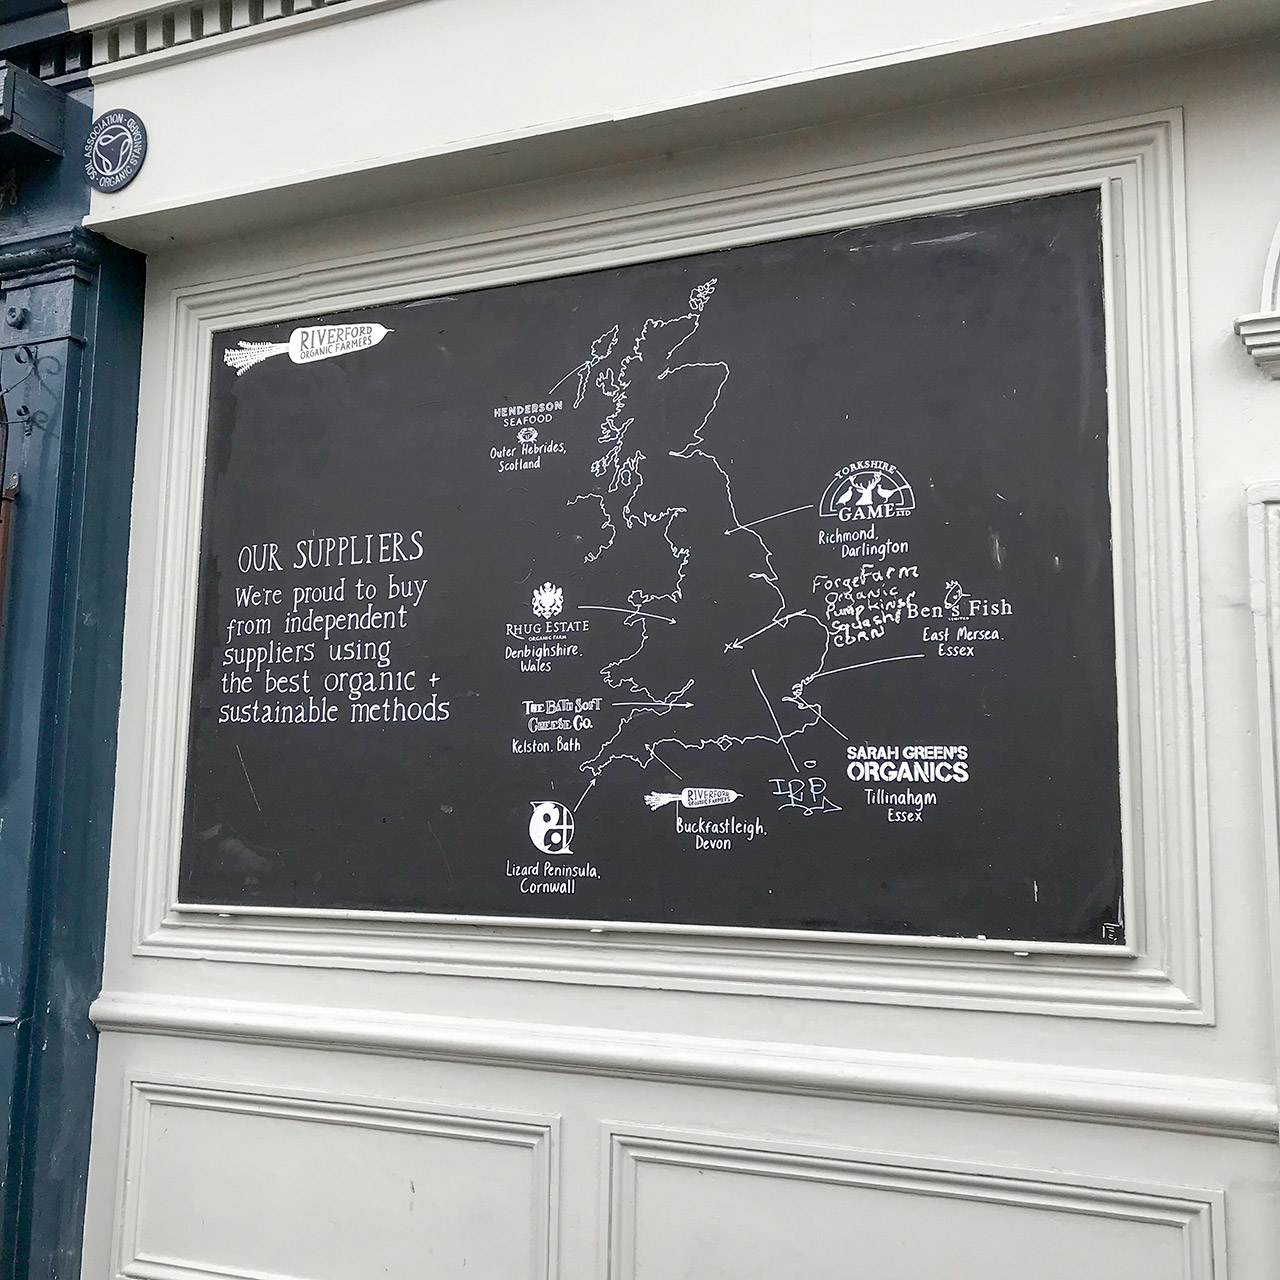 SOIL ASSOCIATION · ORGANIC STANDARD
RIVERFORD
ORGANIC FARMERS
OUR SUPPLIERS
We're proud to buy
from independent
suppliers using
the best organic +
sustainable methods
HENDERSON
SEAFOOD
Outer Hebrides,
Scotland
YORKSHIRE
GAME LTD
Richmond,
Darlington
Forge Farm
Organic
Pumpkins
Squash
CORN
Ben's Fish
LIMITED
East Mersea,
Essex
RHUG ESTATE
ORGANIC FARM
Denbighshire,
Wales
THE BATH SOFT
CHEESE CO.
Kelston, Bath
SARAH GREEN'S
ORGANICS
Tillinahgm
Essex
RIVERFORD
ORGANIC FARMERS
Buckfastleigh,
Devon
Lizard Peninsula,
Cornwall